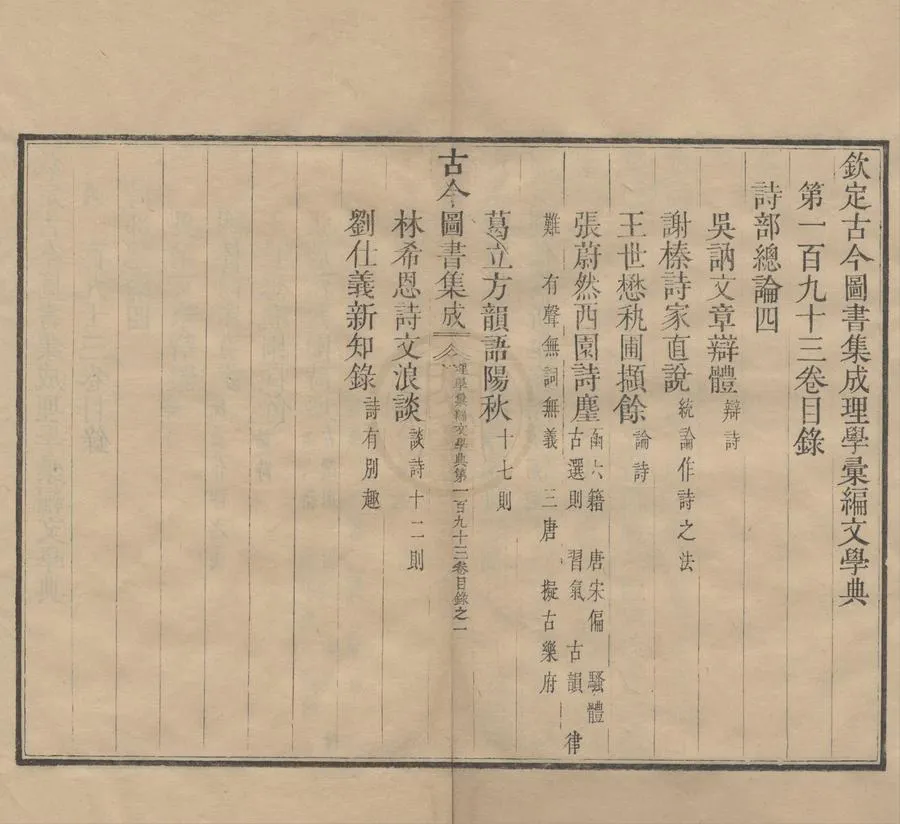 欽定古今圖書集成理學彙編文學典
第一百九十三卷目錄
詩部總論四
吳訥文章辯體 辯詩
謝榛詩家直說 統論作詩之法
王世懋秇圃擷餘 論詩
張蔚然西園詩麈 函六籍 唐宋偏 騷體
古選則 習氣 古韻 律
難 有聲無詞無義 三唐 擬古樂府
葛立方韻語陽秋 十七則
古今圖書集成 理學彙編文學典第一百九十三卷目錄之一
林希恩詩文浪談 談詩十二則
劉仕義新知錄 詩有別趣